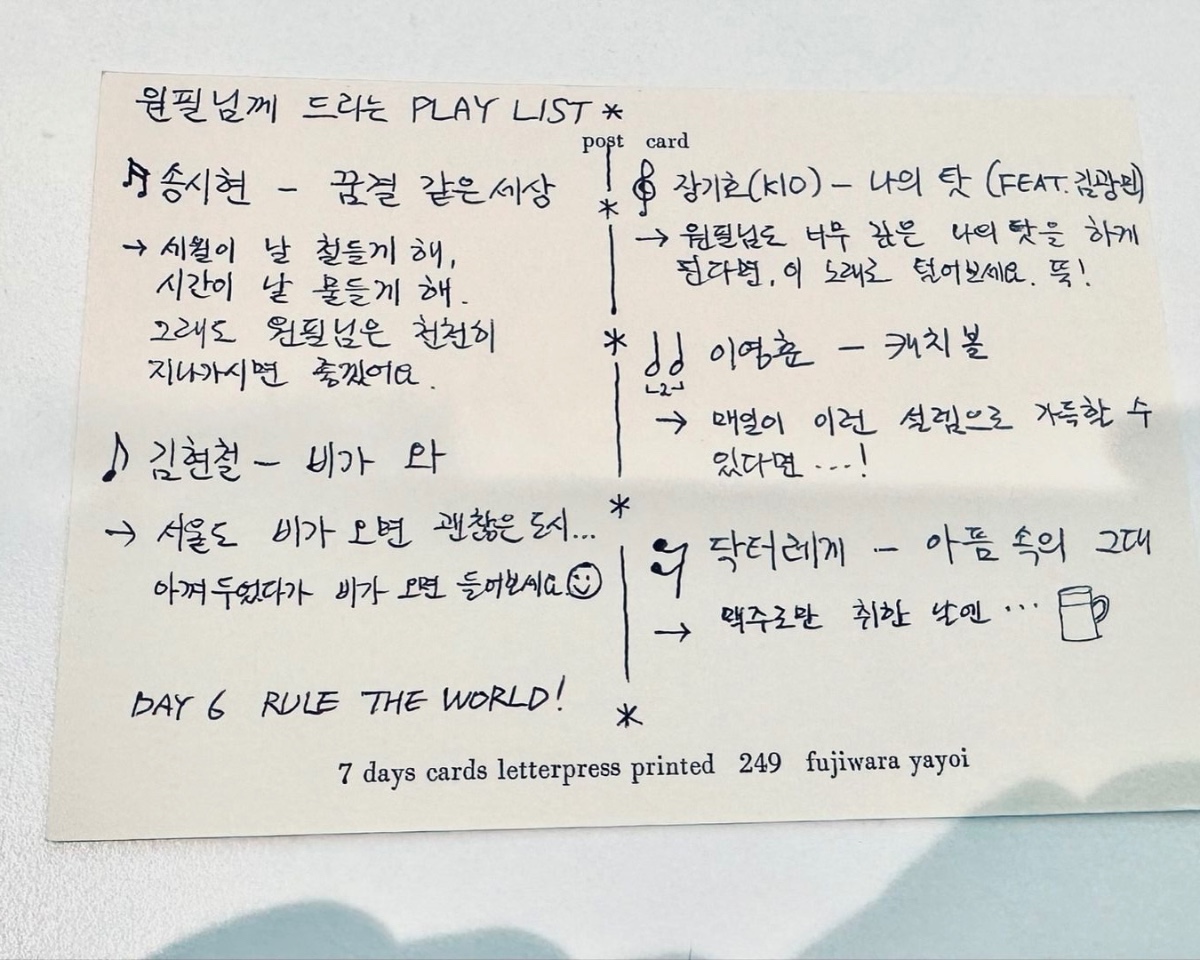 원필님께 드리는 PLAY LIST *
post card
송시현 - 꿈결 같은 세상
→ 세월이 날 철들게 해,
시간이 날 물들게 해.
그래도 원필님은 천천히
지나가시면 좋겠어요.
김현철 - 비가 와
→ 서울도 비가 오면 괜찮은 도시...
아껴 두었다가 비가 오면 들어보세요
DAY 6 RULE THE WORLD!
장기호(KIO) - 나의 탓 (FEAT. 김광민)
→ 원필님도 너무 깊은 나의 탓을 하게
된다면, 이 노래로 털어보세요. 뚝!
이영훈 - 캐치볼
→ 매일이 이런 설렘으로 가득할 수
있다면 ...!
닥터레게 - 아픔 속의 그대
→ 맥주로만 취한 날엔 ...
7 days cards letterpress printed 249 fujiwara yayoi